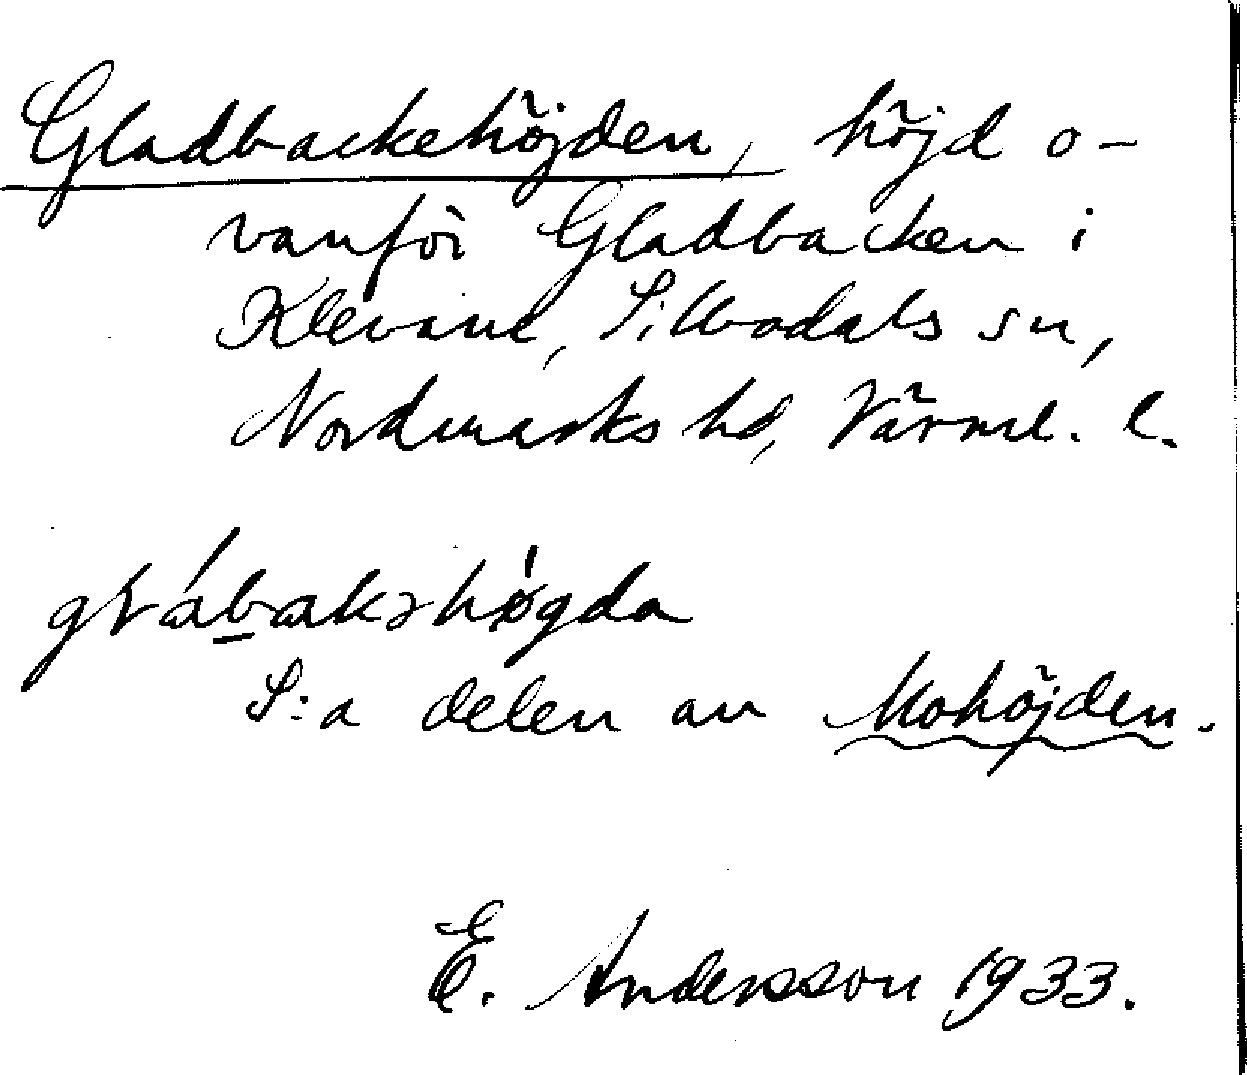 Gladbackehöjden, höjd o-
vanför Gladbacken i
Klevane, Sillbodals sn,
Nordmarks hd, Värml. l.
S:a delen av Mohöjden.
E. Andersson 1933.